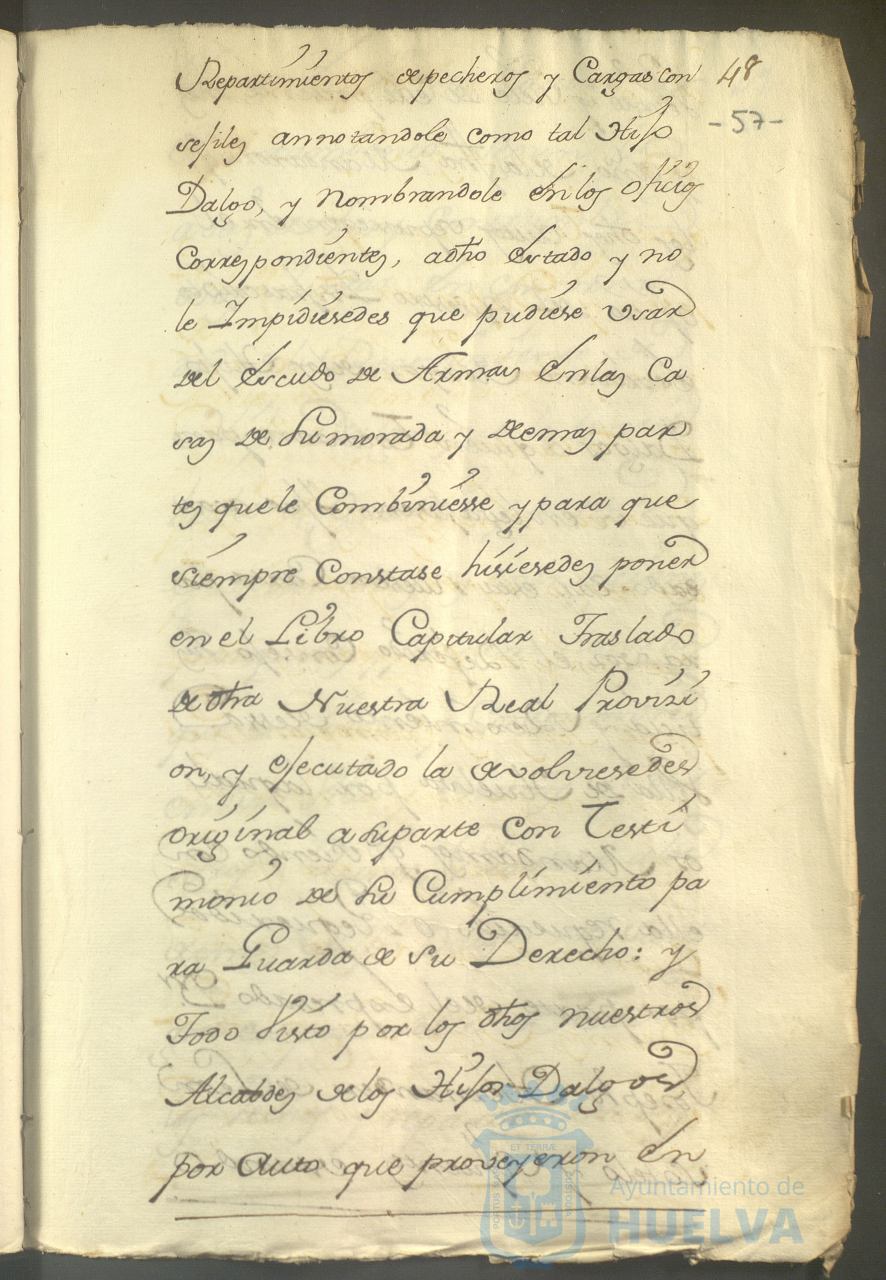 Repartimientos de pecheros y Cargas con 48
sejiles annotandole como tal Hijo -57-
Dalgo, y Nombrandole En los oficios
Correspondientes, a dho Estado y no
le Impidiesedes que pudiese Usar
del Escudo de Armas En las Ca
sas de Su morada y demas par
tes que le Combiniesse y para que
siempre Constase hisiesedes poner
en el Libro Capitular Traslado
de dha Nuestra Real Provizi
on, y ejecutado la devolviesedes
original a Su parte Con Testi
monio de Su Cumplimiento pa
ra Guarda de su Derecho: y
Todo Visto por los dhos nuestros
Alcaldes de los Hijos Dalgos
por Auto que proveyeron En
Ayuntamiento de
HUELVA